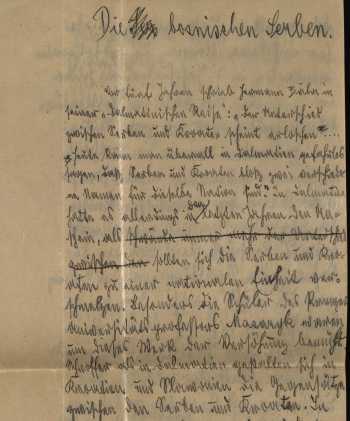 Die bosnischen Serben.
Vor fünf Jahren schrieb Hermann Bahr in
seiner „Dalmatinischen Reise": „Der Unterschied
zwischen Serben und Kroaten scheint erloschen"...
„Heute kann man überall in Dalmatien gefahrlos
sagen, daß Serben und Kroaten bloß zwei verschiede-
ne Namen für dieselbe Nation sind." In Dalmatien
hatte es allerdings in den letzten Jahren den An-
schein, als sollten sich die Serben und Kro-
aten zu einer nationalen Einheit ver-
schmelzen. Besonders die Schüler des Prager
Universitätsprofessors Masaryk waren
um dieses Werk der Versöhnung bemüht.
Schroffer als in Dalmatien gestalten sich in
Kroatien und Slawonien die Gegensätze
zwischen den Serben und Kroaten. In